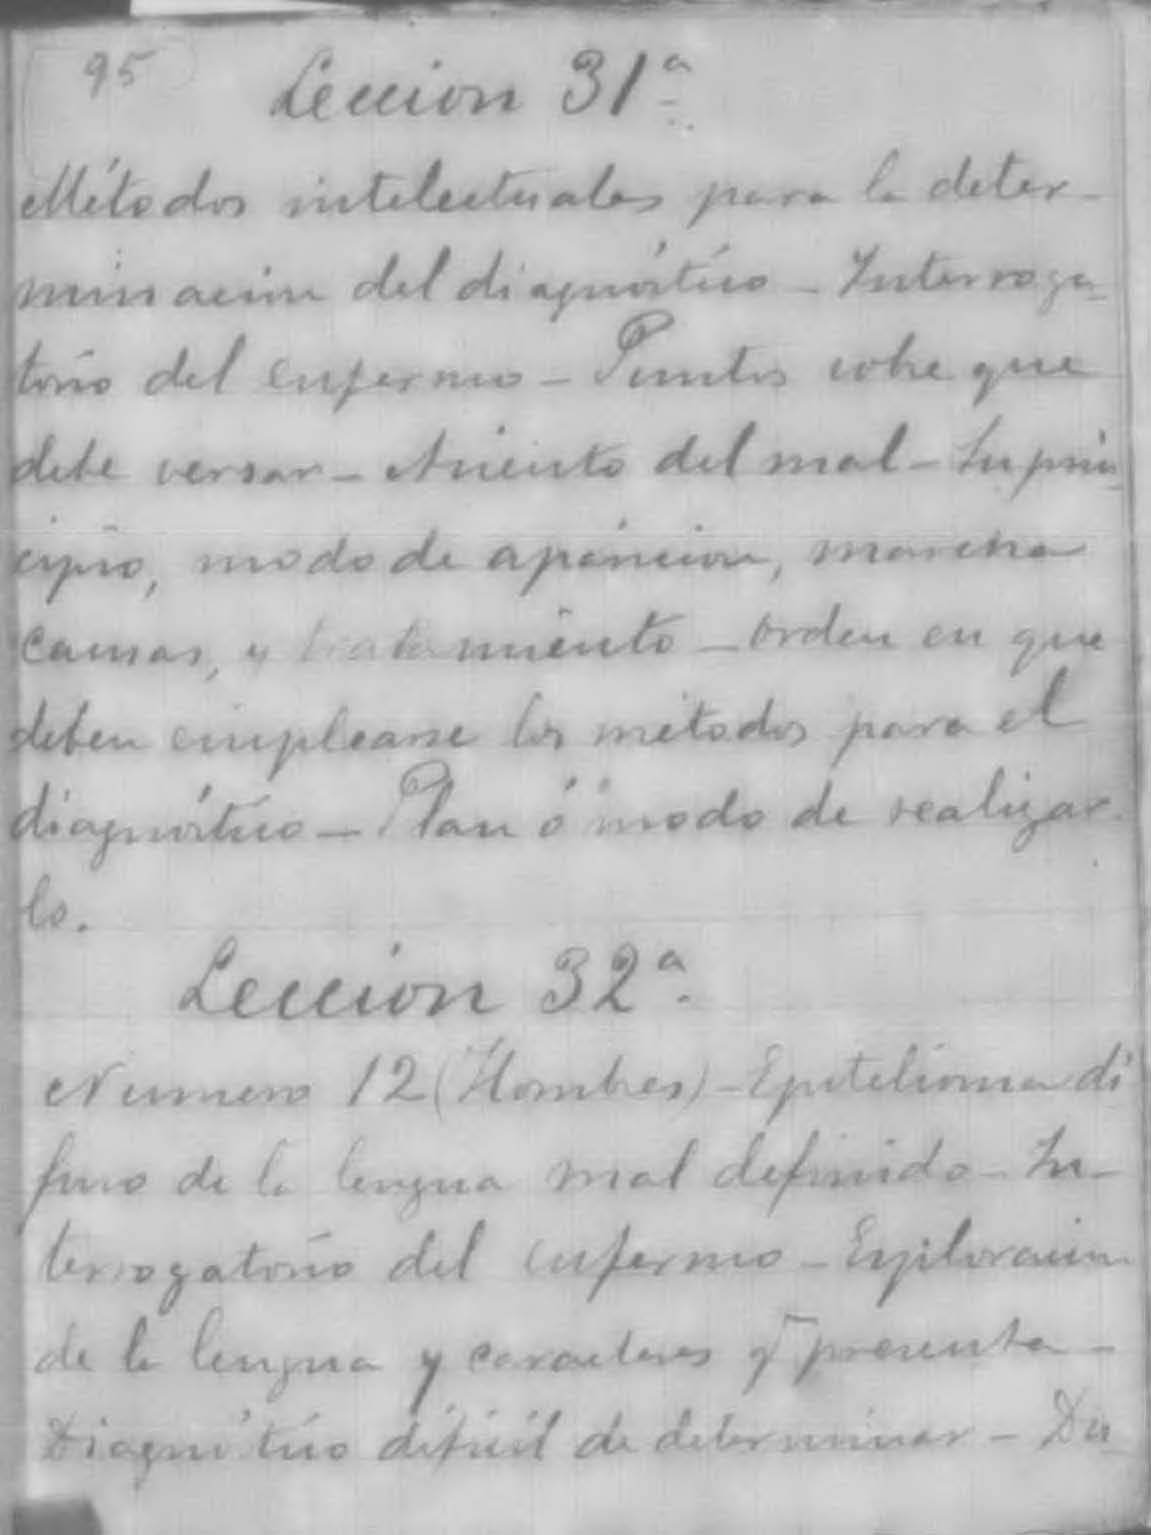 95
Leccion 31ª
Métodos intelectuales para la deter-
minacion del diagnóstico - Interroga-
torio del enfermo - Puntos sobre que
debe versar - Asiento del mal - Su prin-
cipio, modo de aparicion, marcha
causas, y tratamiento - Orden en que
deben emplearse los métodos para el
diagnóstico - Plan ó modo de realizar-
lo.
Leccion 32ª
Numero 12 (Hombres) - Epitelioma di
fuso de la lengua mal definido - In-
terrogatorio del enfermo - Exploracion
de la lengua y caracteres q presenta -
Diagnóstico dificil de determinar - Du